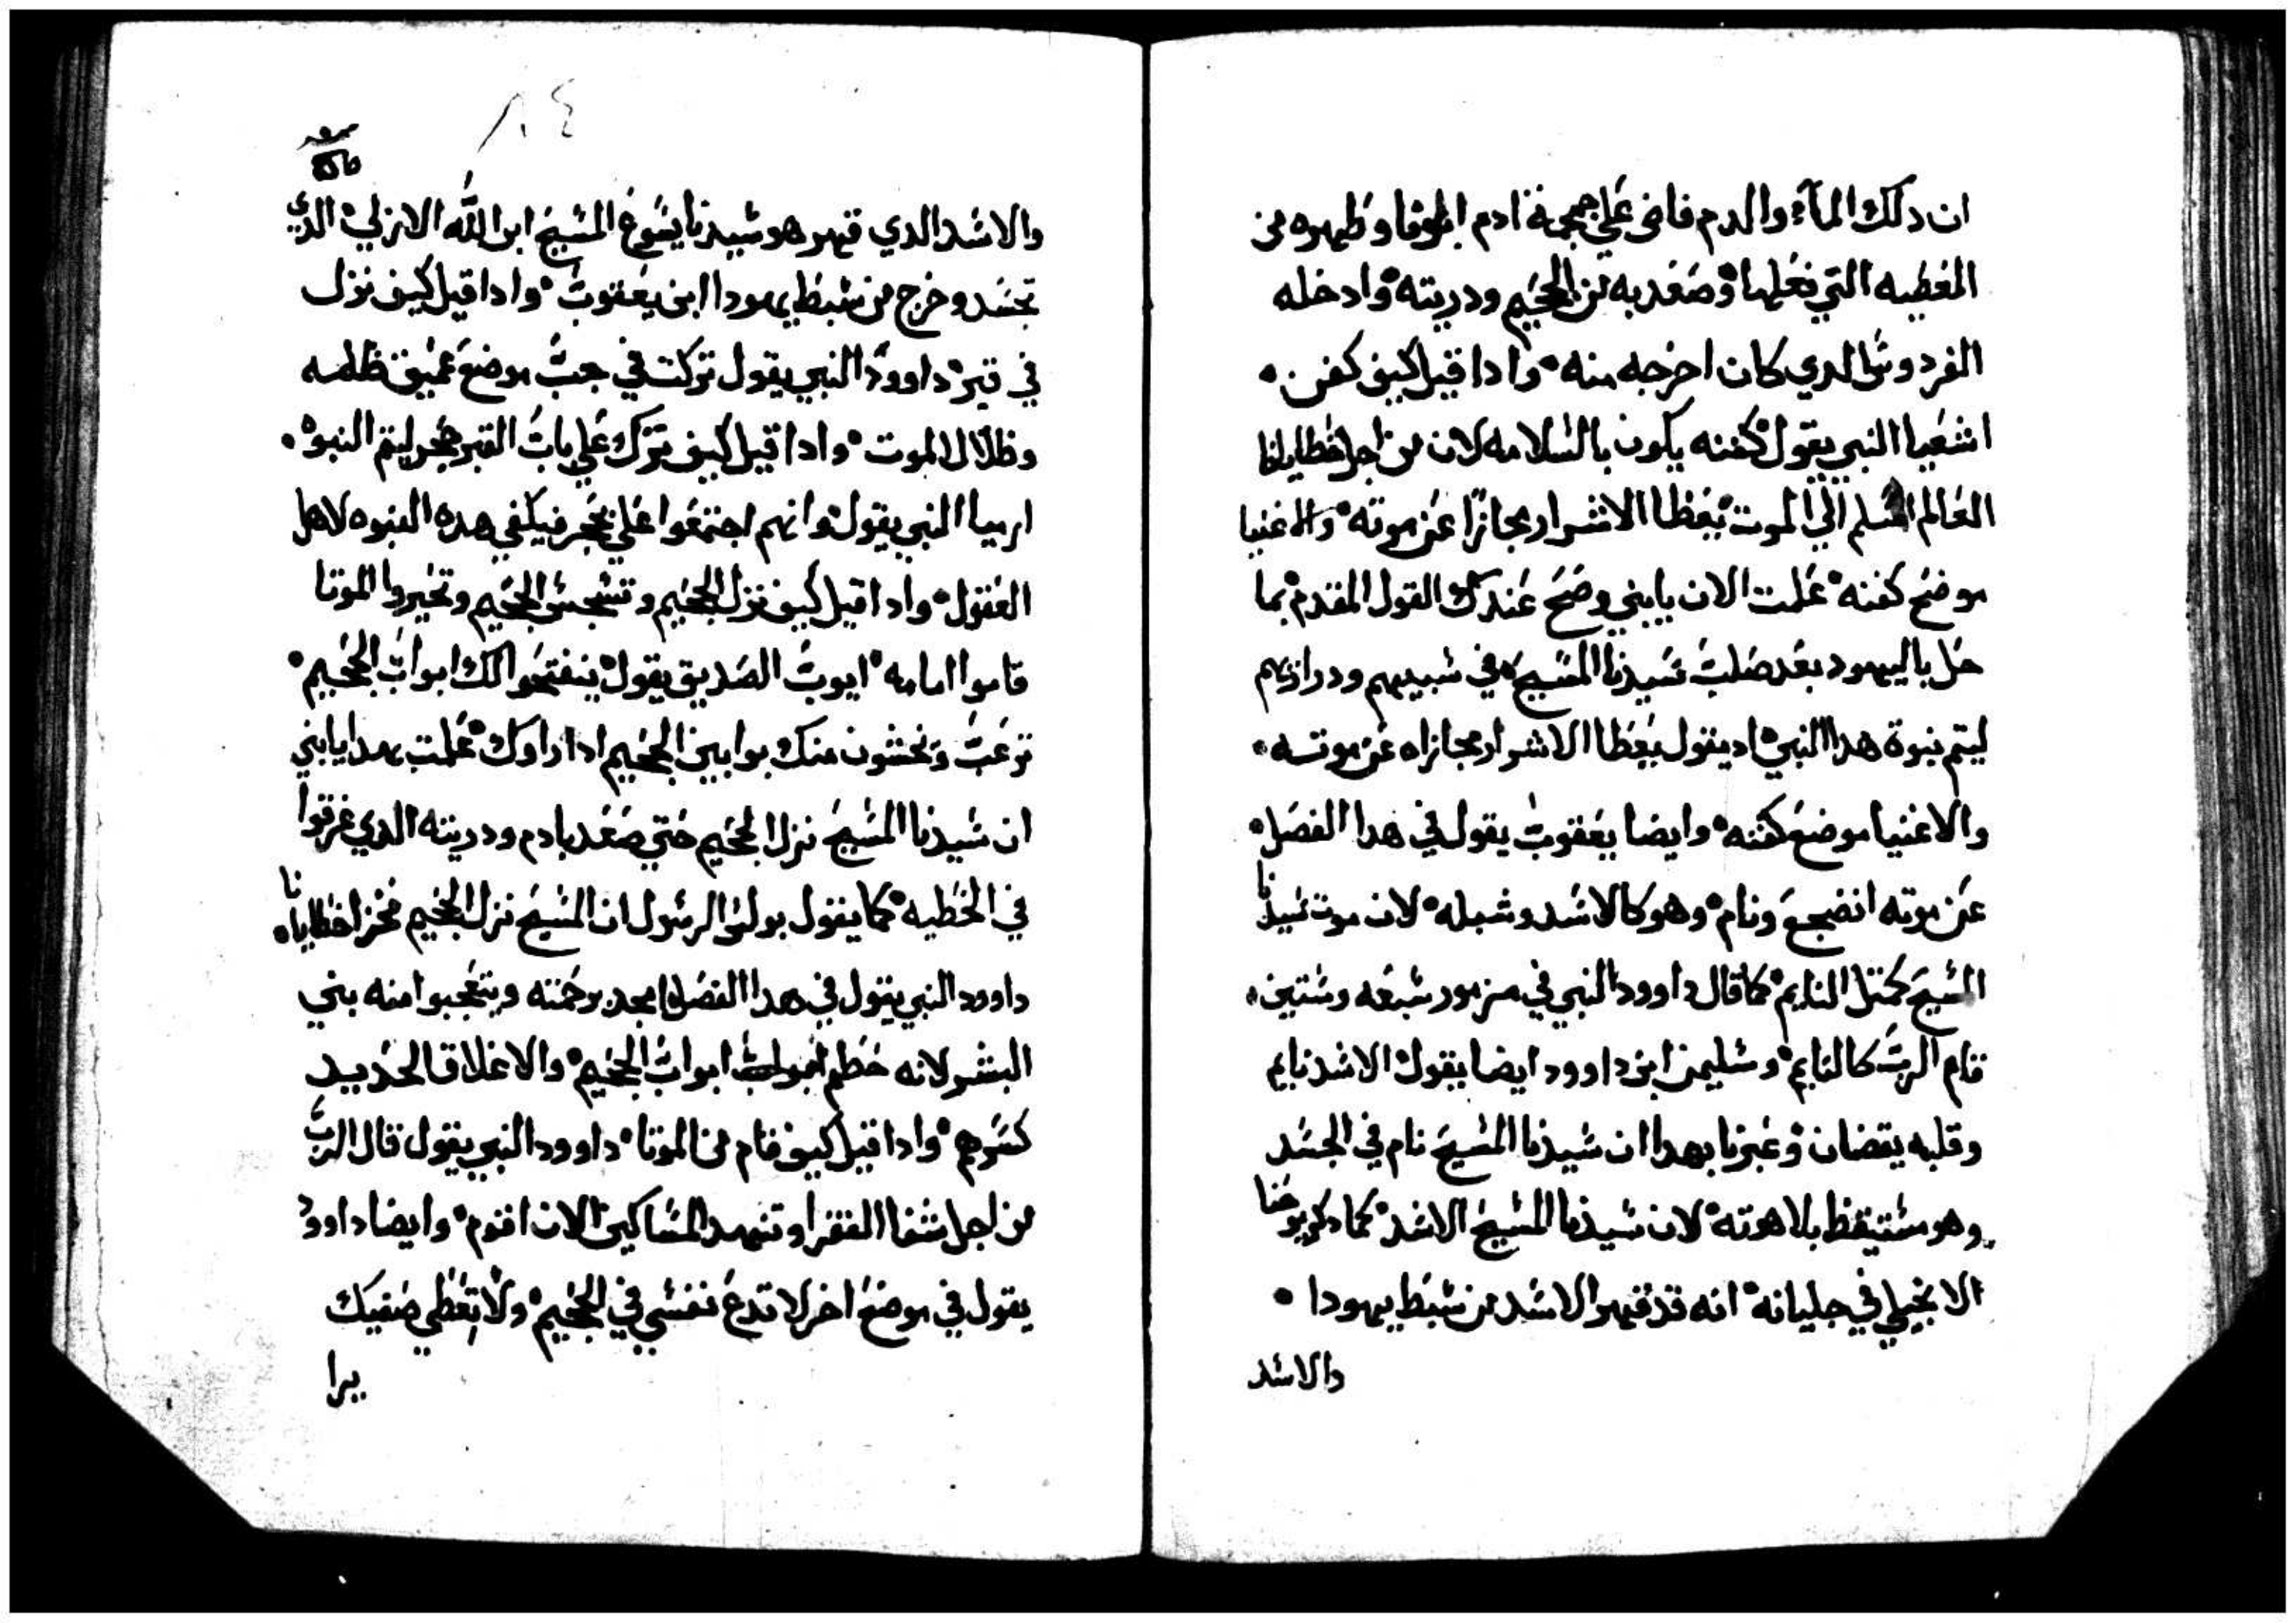 ان دلك المآء والدم فاض علي جمجمة ادم ابونا وطهره من
الخطيه التي فعلها وصعد به من الجحيم ودريته وادخله
الفردوس الدي كان اخرجه منه وادا قيل كيف كفن
اشعيا النبي يقول كفنه يكون بالسلامه لان من اجل خطايانا
العالم اسلم الي الموت يعطا الاشرار مجازا عن موته والاغنيا
موضع كفنه علمت الان يابني وصح عندك القول المقدم بما
حل باليهود بعد صلب سيدنا المسيح في شبيهم ودرازيهم
ليتم نبوة هدا النبي اد يقول يعطا الاشرار مجازاه عن موته
والاغنيا موضع كفنه وايضا يعقوب يقول في هدا الفصل
عن موته انضجع ونام وهو كالاسد وشبله لان موت سيدنا
المسيح كمثل النايم كما قال داوود النبي في مزمور سبعه وستين
قام الرب كالنايم وسليمن ابن داوود ايضا يقول الاسد نايم
وقلبه يقضان وعبرنا بهدا ان سيدنا المسيح نام في الجسد
وهو مستيقظ بلاهوته لان سيدنا المسيح الاسد كما دكر يوحنا
الانجيلي في جليانه انه قد قهر الاسد من سبط يهودا
والاسد
٨٤
والاسد الدي قهر هو سيدنا يسوع المسيح ابن الله الازلي الدي
تجسد وخرج من سبط يهودا ابن يعقوب وادا قيل كيف نزل
في قبر داوود النبي يقول تركت في جب موضع عميق ظلمه
وظلال الموت وادا قيل كيف ترك علي باب القبر حجر ليتم النبوه
ارميا النبي يقول وانهم اجتمعوا علي بحجر فيكفي هده النبوه لاهل
العقول وادا قيل كيف نزل الجحيم وتسجس الجحيم وتحيروا الموتا
قاموا امامه ايوب الصديق يقول ينفتحوا لك ابواب الجحيم
ترعب ونحشون منك بوابين الجحيم ادا راوك علمت بهدا يابني
ان سيدنا المسيح نزل الجحيم حتي صعد بادم ودريته الدي غرقوا
في الخطيه كما يقول بولس الرسول ان المسيح نزل الجحيم محزا خطايانا
داوود النبي يقول في هدا الفصل امجد برحمته ويتعجبوا منه بني
البشر لانه حطم ابواب ابواب الجحيم والاغلاق الحديد
كسرهم وادا قيل كيف قام من الموتا داوود النبي يقول قال الرب
من اجل شقا الفقرا وتنهد المساكين الان اقوم وايضا داوود
يقول في موضع اخر لا تدع نفسي في الجحيم ولا تعطي صفيك
يرا